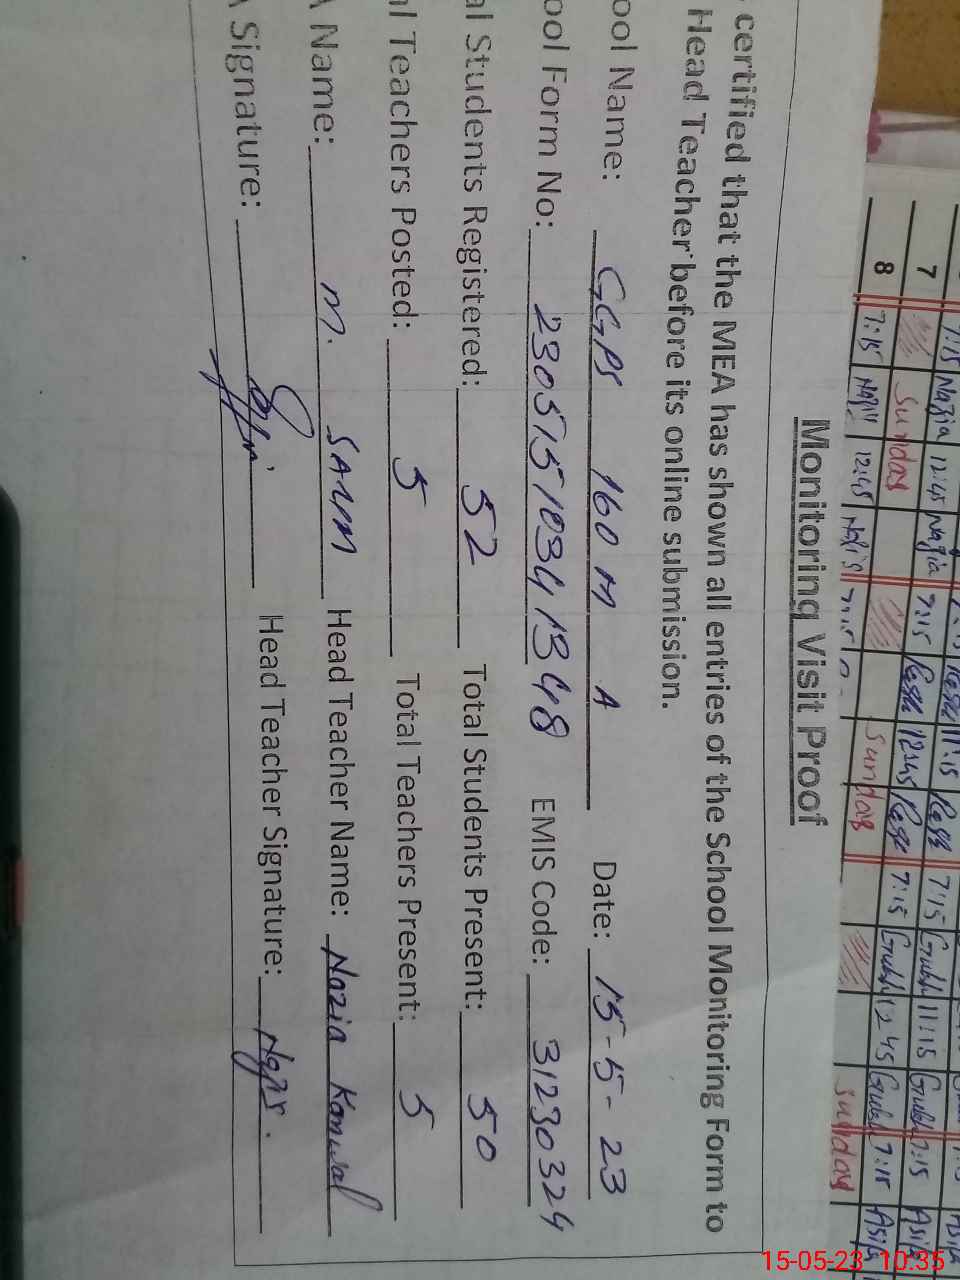 7 7:15 Nazia 12:45 Nazia 7:15 12:45 7:15 11:15 7:15
8 Sunday Sunday Sunday
7:15 12:45 7:15 12:45 7:15
Monitoring Visit Proof
certified that the MEA has shown all entries of the School Monitoring Form to
Head Teacher before its online submission.
ool Name: GGPS 160 M A Date: 15-5-23
ool Form No: 23051551034 1348 EMIS Code: 31230324
al Students Registered: 52 Total Students Present: 50
al Teachers Posted: 5 Total Teachers Present: 5
A Name: M. SALIM Head Teacher Name: Nazia Kanwal
A Signature: Head Teacher Signature:
15-05-23 10:35